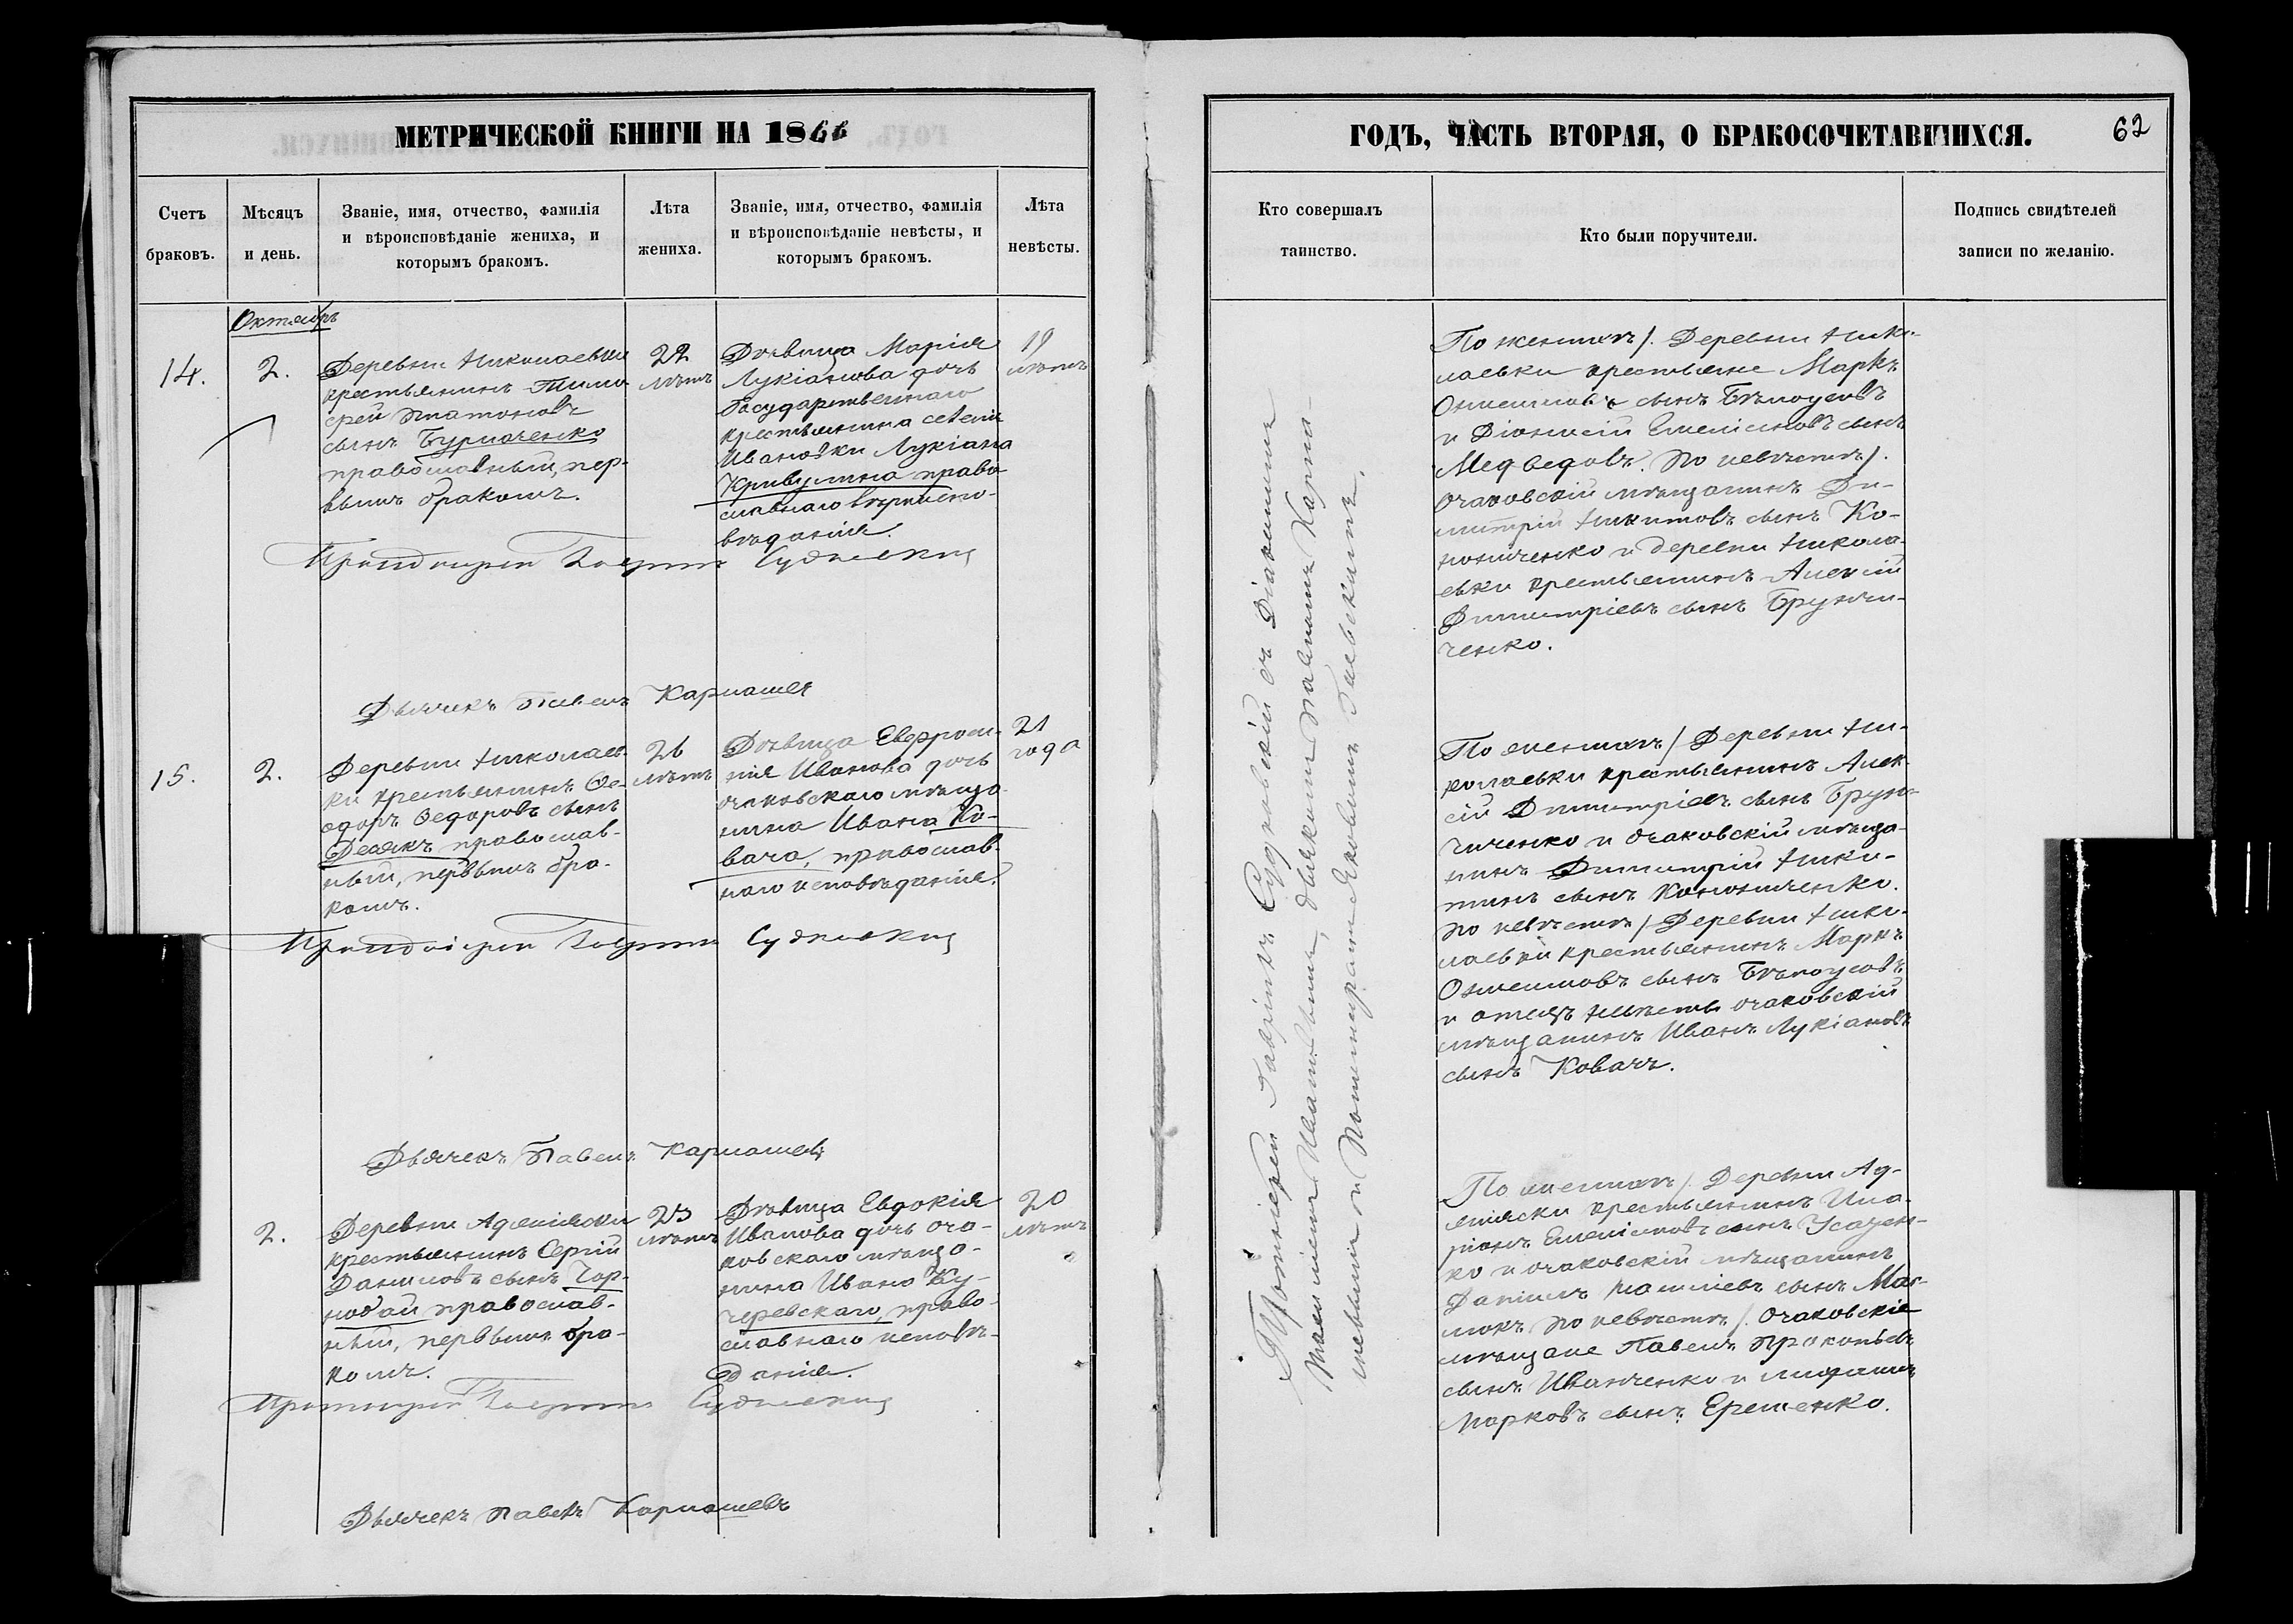 МЕТРИЧЕСКОЙ КНИГИ НА 1866
Счетъ браковъ.
Мѣсяцъ и день.
Званіе, имя, отчество, фамилія
и вѣроисповѣданіе жениха, и
которымъ бракомъ.
Лѣта жениха.
Званіе, имя, отчество, фамилія
и вѣроисповѣданіе невѣсты, и
которымъ бракомъ.
Лѣта невѣсты.
Октябрь
14.
2.
Деревни Николаевки
крестьянинъ Тимо-
фей Платоновъ
сынъ Бурлаченко
православный, пер-
вымъ бракомъ.
22
лѣтъ
Дѣвица Марія
Лукіанова дочь
Государственнаго
крестьянина селенія
Ивановки Лукіана
Кривулина право-
славнаго вѣроиспо-
вѣданія.
19
лѣтъ
Протоіерей Гавріилъ Судковскій
Дьячекъ Павелъ Карпашев
15.
2.
Деревни Николаев-
ки крестьянинъ Ѳе-
одоръ Ѳедоровъ сынъ
Десякъ православ-
ный, первымъ бра-
комъ.
26
лѣтъ
Дѣвица Евфроси-
нія Иванова дочь
очаковскаго мѣща-
нина Ивана Ко-
вача, православ-
наго исповѣданія.
21
года
Протоіерей Гавріилъ Судковскій
Дьячекъ Павелъ Карпашевъ
2.
Деревни Аджіяски
крестьянинъ Сергій
Даниловъ сынъ Чор-
нобай православ-
ный, первымъ бра-
комъ.
23
лѣтъ
Дѣвица Евдокія
Иванова дочь оча-
ковскаго мѣща-
нина Ивана Ку-
черевскаго, право-
славнаго исповѣ-
данія.
20
лѣтъ
Протоіерей Гавріилъ Судковскій
Дьячекъ Павелъ Карпашевъ
ГОДЪ, ЧАСТЬ ВТОРАЯ, О БРАКОСОЧЕТАВШИХСЯ.
62
Кто совершалъ
таинство.
Кто были поручители.
Подпись свидѣтелей
записи по желанію.
Протоіерей Гавріилъ Судковскій съ Діакономъ
дьячкомъ Павломъ Карпа-
шевымъ и Пономаремъ Яковомъ
По женихѣ/. Деревни Нико-
лаевки крестьяне Маркъ
сынъ Бѣлоусовъ
и Діонисій Емеліановъ сынъ
Медведовъ. По невѣстѣ/.
Очаковскій мѣщанинъ Ди-
митрій Никитовъ сынъ Ко-
нониченко и деревни Никола-
евки крестьянинъ Алексій
Димитріевъ сынъ Брунчи-
ченко.
По женихѣ/ Деревни Ни-
колаевки крестьянинъ Алек-
сій Димитріевъ сынъ Брун-
чиченко и очаковскій мѣща-
нинъ Димитрій Ники-
тинъ сынъ Кононыченко.
По невѣстѣ/ Деревни Нико-
лаевки крестьянинъ Маркъ
сынъ Бѣлоусовъ
и отецъ невѣсты очаковскій
мѣщанинъ Иванъ Лукіановъ
сынъ Ковачъ.
По женихѣ/. Деревни Ад-
жіяски крестьянинъ Ила-
ріонъ Емеліановъ сынъ Усачен-
ко и очаковскій мѣщанинъ
Даніилъ сынъ Мас-
люкъ по невѣстѣ/. очаковскіе
мѣщане Павелъ Прокопьевъ
сынъ Иванченко и
Марковъ сынъ Ерешенко.